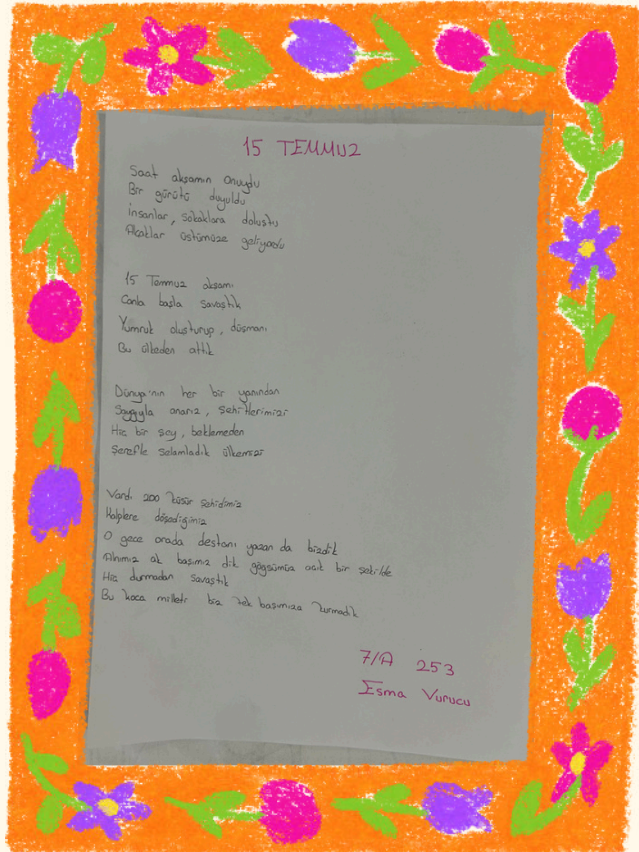 15 TEMMUZ
Saat akşamın onuydu
Bir gürütü duyuldu
İnsanlar, sokaklara doluştu
Alçaklar üstümüze geliyordu
15 Temmuz akşamı
Canla başla savaştık
Yumruk oluşturup, düşmanı
Bu ülkeden attık
Dünya'nın her bir yanından
Saygıyla anarız, Şehitlerimizi
Hiç bir şey, beklemeden
Şerefle selamladık ülkemizi
Vardı 200 küsür şehidimiz
Kalplere döşediğimiz
O gece orada destanı yazan da bizdik
Alnımız ak başımız dik göğsümüz açık bir şekilde
Hiç durmadan savaştık
Bu koca milleti biz tek başımıza kurmadık
7/A 253
Esma Vurucu